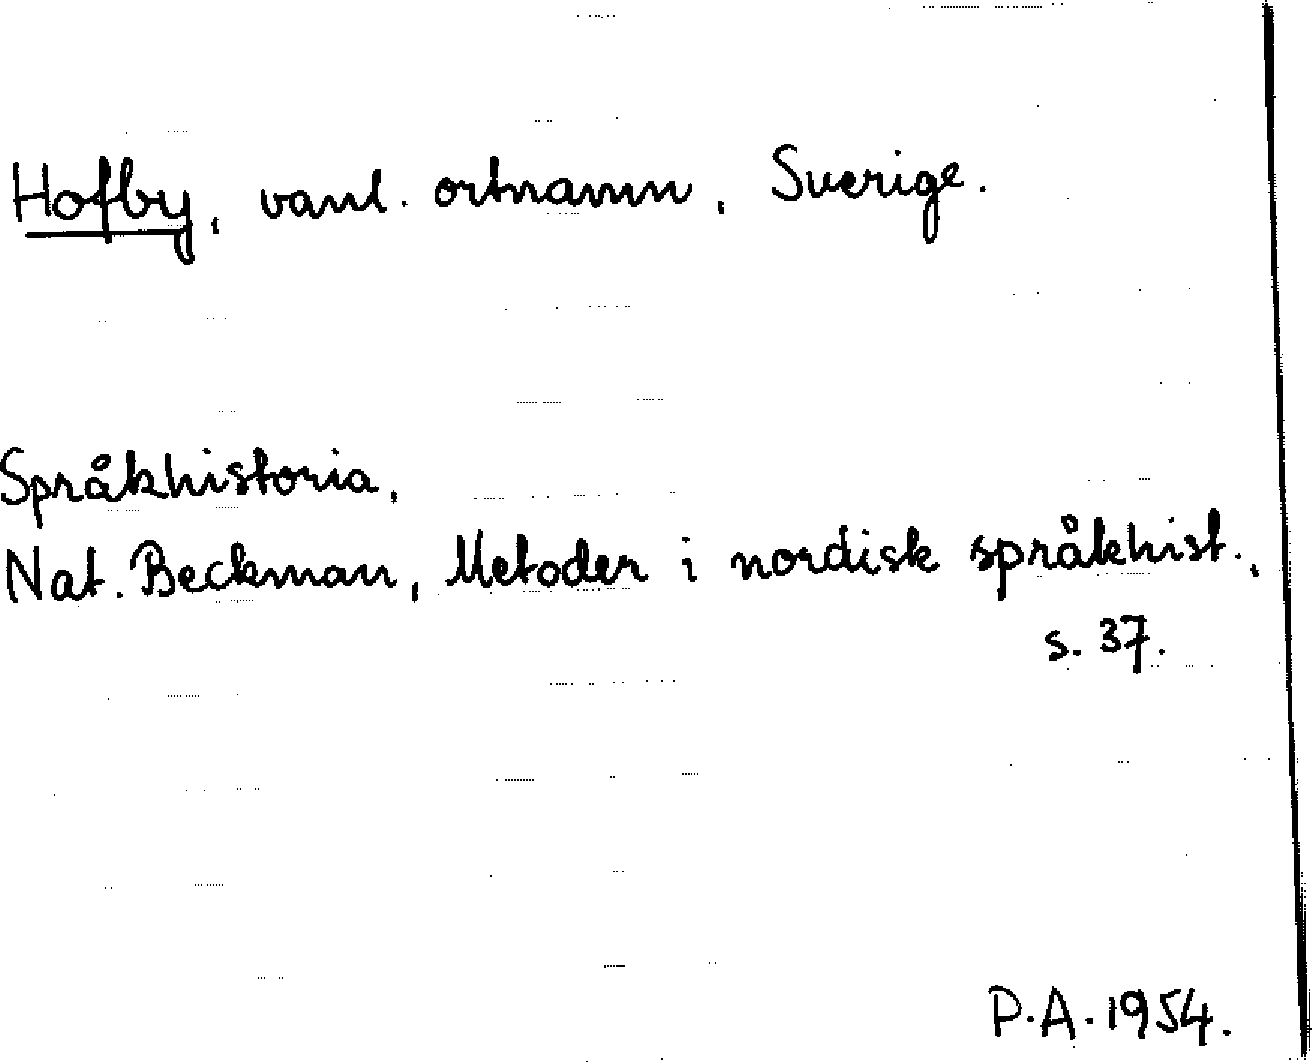 Hofby, vanl. ortnamn, Sverige.
Språkhistoria,
Nat. Beckman, Metoder i nordisk språkhist.,
s. 37.
P.A. 1954.